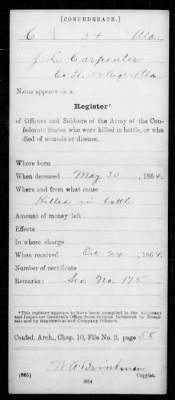 (CONFEDERATE.)
C 54 Ala.
J. L. Carpenter
Co. H, 54 Regt. Ala.
Name appears on a
Register*
of Officers and Soldiers of the Army of the Con-
federate States who were killed in battle, or who
died of wounds or disease.
Where born
When deceased May 30, 1864.
Where and from what cause
Killed in battle
Amount of money left
Effects
In whose charge
When received Oct 24, 1864.
Number of certificate
Remarks: No. 175
*This register appears to have been compiled in the Adjutant
and Inspector General's Office from reports furnished by Hospi-
tals and by Regimental and Company Officers.
Confed. Arch., Chap. 10, File No. 2, page 58
W. A. Brinkman
(665) Copyist.